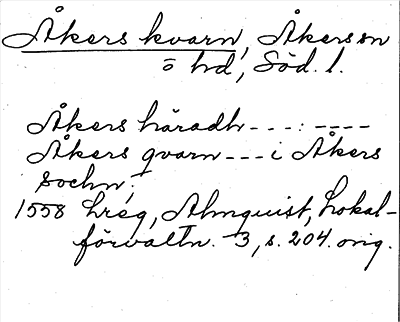 Åkers kvarn, Åkers sn
o hd, Söd. l.
Åkers häradh - - - : - - - -
Åkers qvarn - - - i Åkers
sochn;
1558 hreg, Almquist, Lokal-
förvaltn. 3, s. 204. orig.